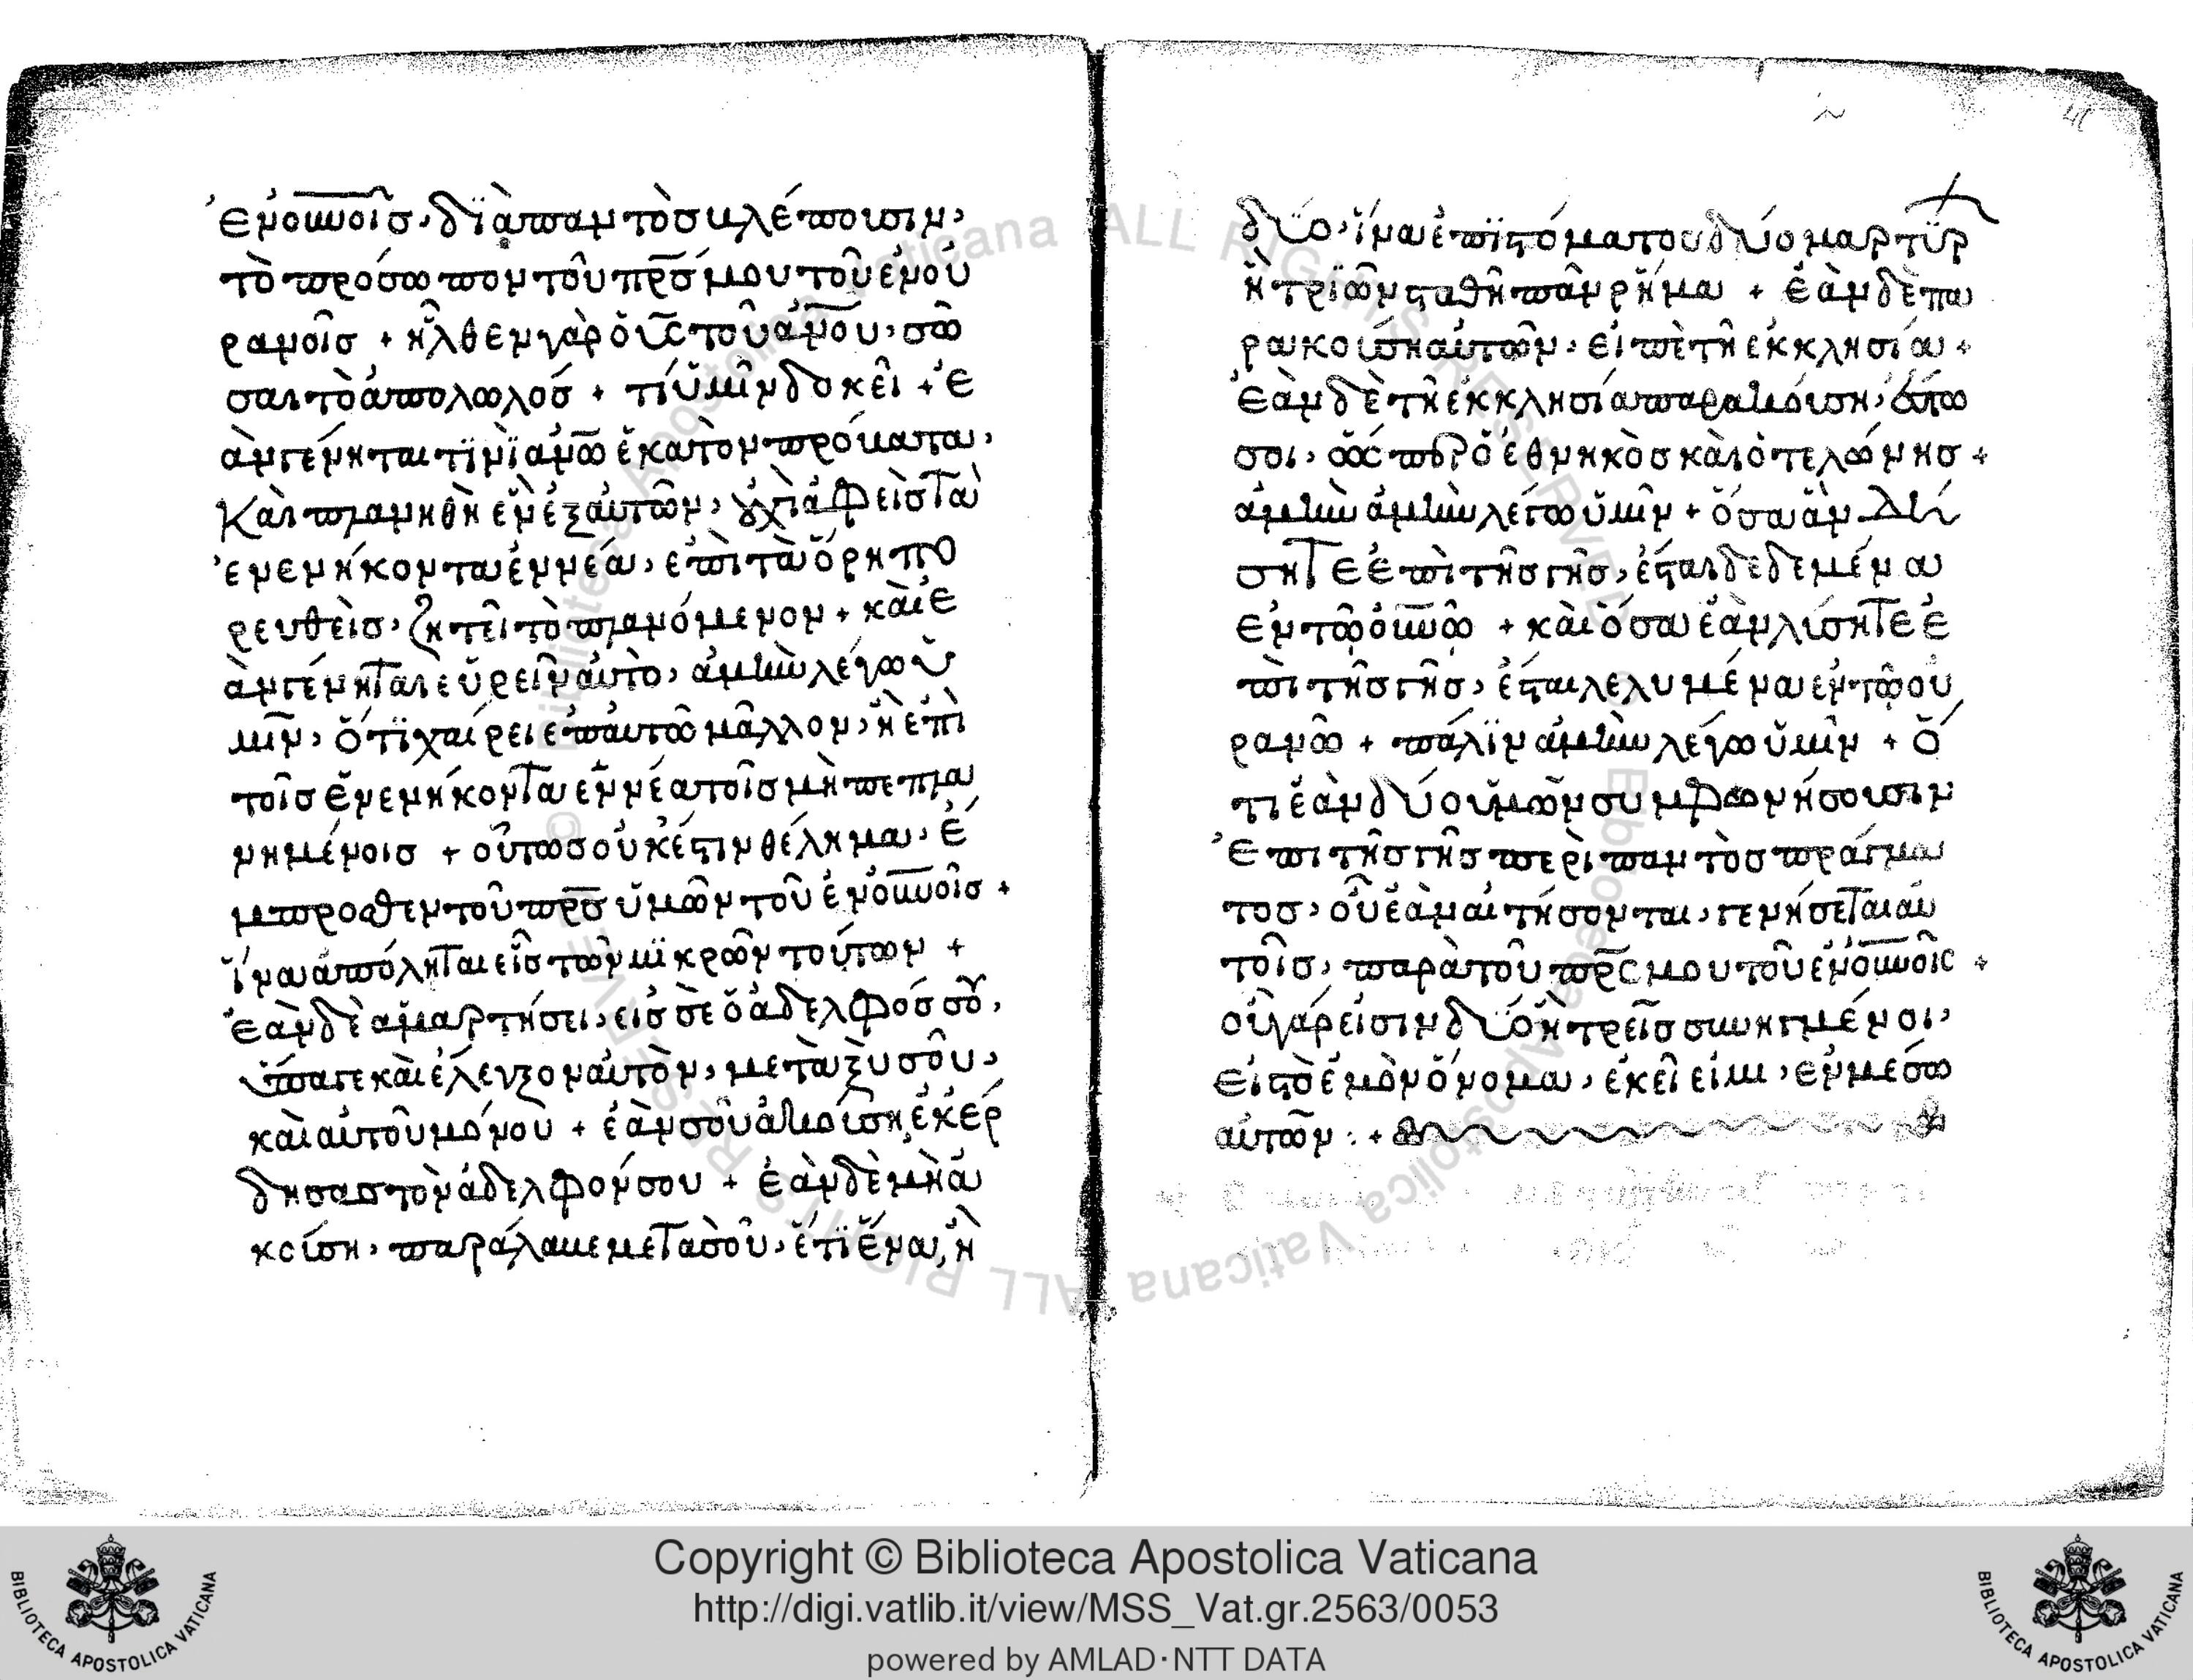 ἐν οὐνοῖς· διὰ παντὸς βλέπουσιν,
τὸ πρόσωπον τοῦ πρσ μου τοῦ ἐν οὐ
ρανοῖς + ἦλθεν γὰρ ὁ υς τοῦ ανου, σῶ
σαι τὸ ἀπολωλός + τί ὑμῖν δοκεῖ + ἐ
ὰν γένηται τϊνὶ ανω ἑκατὸν πρόβατα,
Καὶ πλανηθῆ ἓν ἐξ αὐτῶν, οὐχὶ ἀφεὶς τὰ
ἐνενήκοντα ἐννέα, ἐπὶ τὰ ὄρη πο
ρευθεὶς, ζητεῖ τὸ πλανόμενον + καὶ ἐ
ὰν γένηται εὑρεῖν αὐτὸ, ἀμὴν λέγω ὑ
μῖν, ὅτϊ χαίρει ἐπ' αὐτῶ μᾶλλον, ἢ ἐπὶ
τοῖς ἐνενήκοντα ἐννέα τοῖς μὴ πεπλα
νημένοις + οὕτως οὐκ ἔστιν θέλημα, ἔ
μπροσθεν τοῦ πρσ ὑμῶν τοῦ ἐν οὐνοῖς +
ἵνα ἀπόληται εἷς τῶν μϊκρῶν τούτων +
Ἐὰν δὲ ἁμαρτήσει, εἰς σὲ ὁ ἀδελφός σου,
ὕπαγε καὶ ἔλεγξον αὐτὸν, μεταξὺ σοῦ,
καὶ αὐτοῦ μόνου + ἐάν σου ἀκούση, ἐκέρ
δησας τὸν ἀδελφόν σου + ἐὰν δὲ μὴ ἀ
κούση, παράλαβε μετὰ σοῦ, ἔτϊ ἕνα, ἢ
δύο, ἵνα ἐπὶ στόματου δύο μαρτύρ
ἢ τριῶν σταθῆ πᾶν ρῆμα + ἐὰν δὲ πα
ρακούση αὐτῶν, εἰπὲ τῆ ἐκκλησία +
Ἐὰν δὲ τῆ ἐκκλησία παρακούση, ἔστω
σοι, ὥσπερ ὁ ἐθνηκὸς καὶ ὁ τελώνης +
ἀμὴν ἀμὴν λέγω ὑμῖν + ὅσα ἂν δή
σητε ἐπὶ τῆς γῆς, ἔσται δεδεμένα
ἐν τῶ οὐνῶ + καὶ ὅσα ἐὰν λύσητε ἐ
πὶ τῆς γῆς, ἔσται λελυμένα ἐν τῶ οὐ
ρανῶ + πάλϊν ἀμὴν λέγω ὑμῖν + ὅ
τι ἐὰν δύο ὑμῶν συμφωνήσουσιν
ἐπι τῆς γῆς περὶ παντὸς πράγμα
τος, οὗ ἐὰν αἰτήσονται, γενήσεται αὐ
τοῖς, παρὰ τοῦ πρσ μου τοῦ ἐν οὐνοῖς +
οὗ γάρ εἰσιν δύο ἢ τρεῖς συνηγμένοι,
εἰς τὸ ἐμὸν ὄνομα, ἐκεῖ εἰμι, ἐν μέσω
αὐτῶν : +
Copyright © Biblioteca Apostolica Vaticana
http://digi.vatlib.it/view/MSS_Vat.gr.2563/0053
powered by AMLAD·NTT DATA
BIBLIOTECA APOSTOLICA VATICANA
BIBLIOTECA APOSTOLICA VATICANA
© Biblioteca Apostolica Vaticana ALL RIGHTS RESERVED